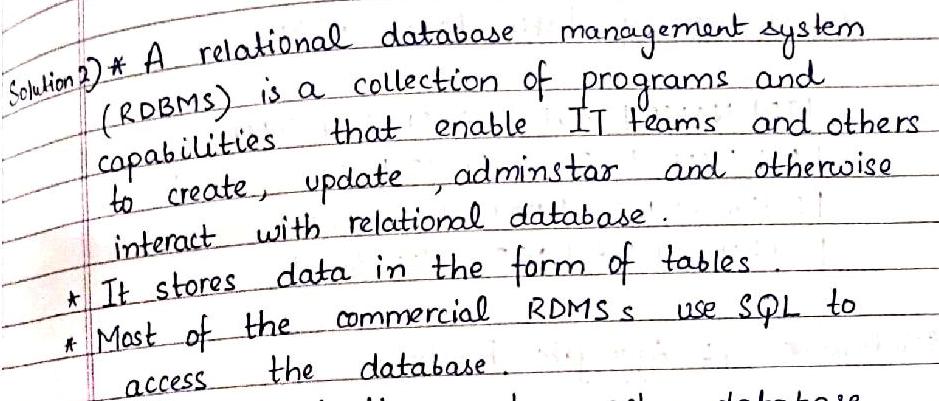 Solution 2) * A relational database management system
(RDBMS) is a collection of programs and
capabilities that enable IT teams and others
to create, update, adminstar and otherwise
interact with relational database.
* It stores data in the form of tables.
* Most of the commercial RDMS s use SQL to
access the database.